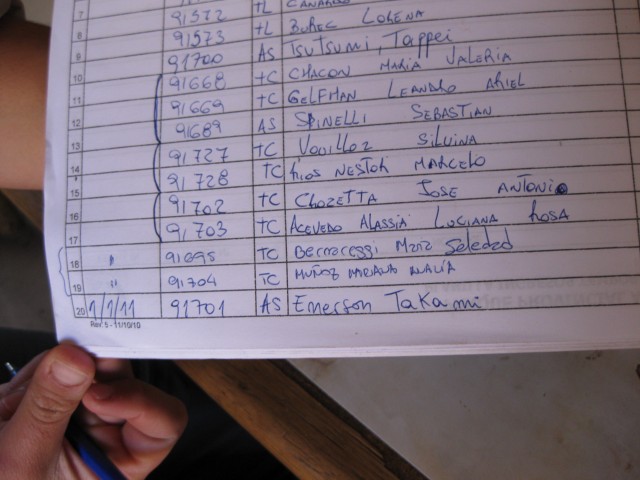 7 91572 TL
8 91573 TL BUREC LORENA
9 91700 AS TSUTSUMI, Tappei
10 91668 TC CHACON MARIA VALERIA
11 91669 TC GELFMAN LEANDRO ARIEL
12 91689 AS SPINELLI SEBASTIAN
13 91727 TC Vouilloz SILVINA
14 91728 TC RIOS NESTOR MARCELO
15 91702 TC CHOZETTA JOSE ANTONIO
16 91703 TC ACEVEDO ALASSIA LUCIANA ROSA
17
18 " 91695 TC Soledad
19 " 91704 TC MUÑOZ MARIANA ANALÍA
20 1/1/11 91701 AS Emerson TaKami
Rev. 5 - 11/10/10